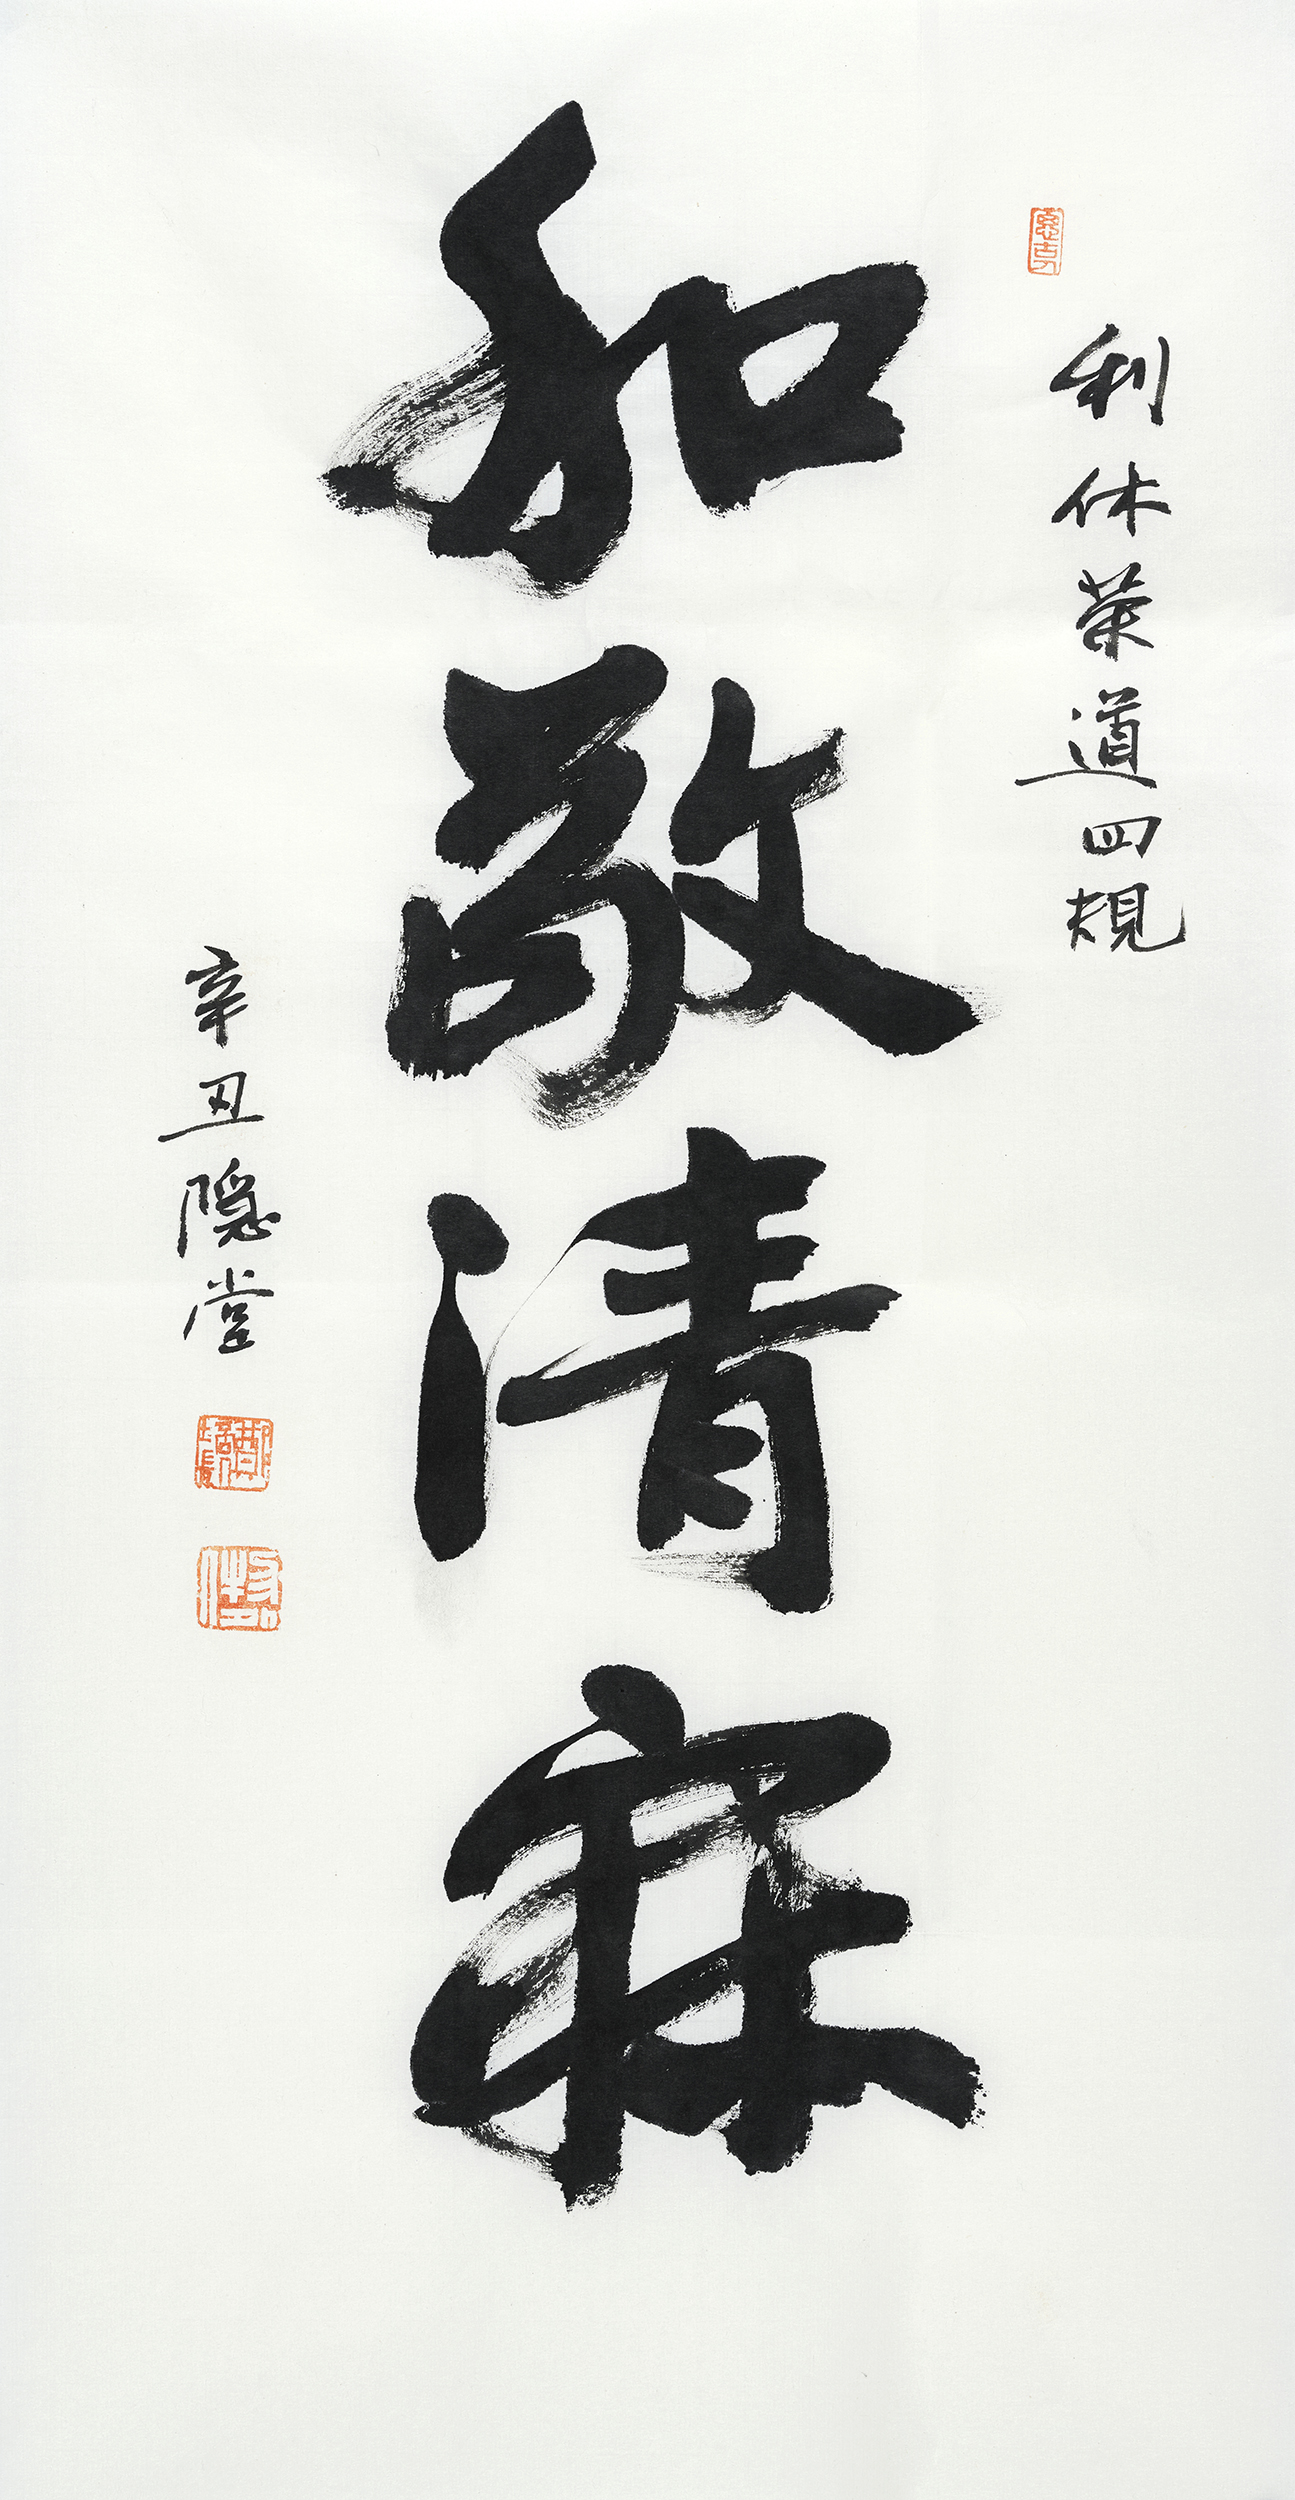 利休茶道四規
和敬清寂
辛丑隠堂